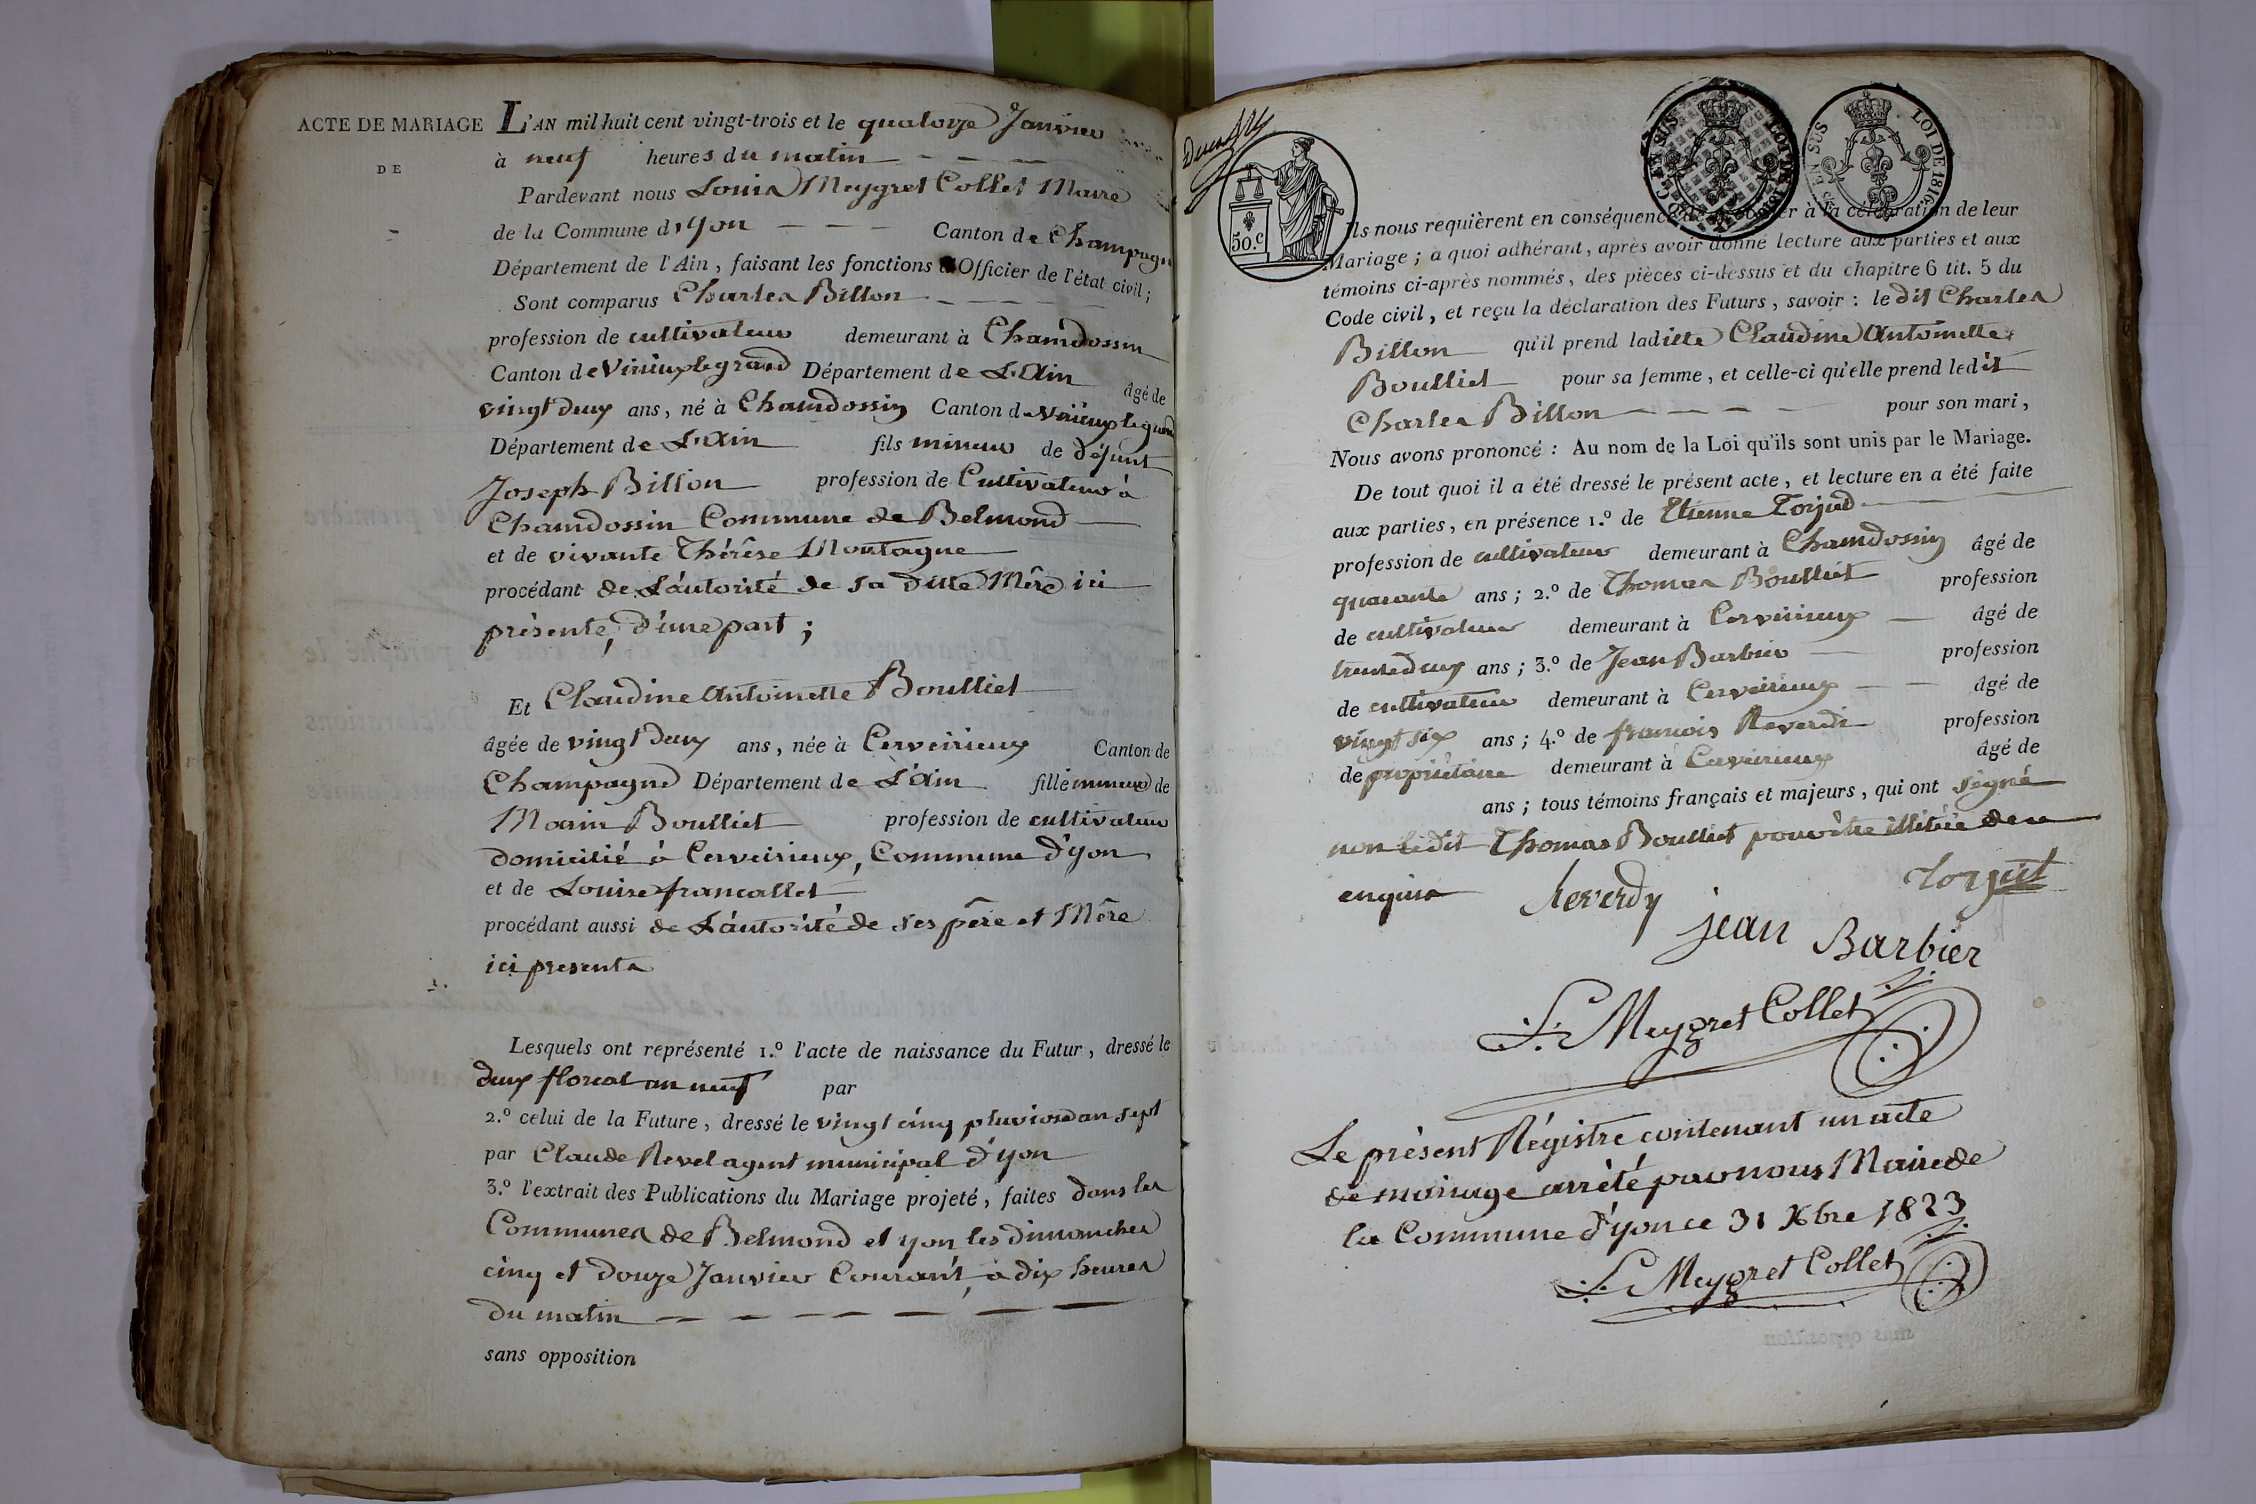 ACTE DE MARIAGE
DE
L'AN mil huit cent vingt-trois et le quatorze Janvier
à neuf heures du matin
Pardevant nous Louis Meygret Collet Maire
de la Commune d'yon Canton de Champagne
Département de l'Ain, faisant les fonctions d'Officier de l'état civil;
Sont comparus Charles Billon
profession de cultivateur demeurant à Chamdossin
Canton de Virieux le grand Département de L'Ain âgé de
vingt deux ans, né à Chamdossin Canton de Virieux le grand
Département de L'Ain fils mineur de défunt
Joseph Billon profession de Cultivateur à
Chamdossin Commune de Belmond
et de vivante Thérèse Montagne
procédant de L'autorité de sa ditte Mère ici
présente, d'une part;
Et Claudine Antoinette Boulliet
âgée de vingt deux ans, née à Cerveirieux Canton de
Champagne Département de L'Ain fille mineure de
Marin Boulliet profession de cultivateur
domicilié à Cerveirieux, Commune d'yon
et de Louise francallet
procédant aussi de L'autorité de ses père et Mère
ici presents
Lesquels ont représenté 1.º l'acte de naissance du Futur, dressé le
deux floreal an neuf par
2.º celui de la Future, dressé le vingt cinq pluviose an sept
par Claude Revel agent municipal d'yon
3.º l'extrait des Publications du Mariage projeté, faites dans les
Communes de Belmond et yon les dimanches
cinq et douze Janvier Courant, à dix heures
du matin
sans opposition
50.c
EN SUS LOI DE 1816.
EN SUS LOI DE 1816.
Ils nous requièrent en conséquence de procéder à la célébration de leur
Mariage; à quoi adhérant, après avoir donné lecture aux parties et aux
témoins ci-après nommés, des pièces ci-dessus et du chapitre 6 tit. 5 du
Code civil, et reçu la déclaration des Futurs, savoir: le dit Charles
Billon qu'il prend laditte Claudine Antoinette
Boulliet pour sa femme, et celle-ci qu'elle prend ledit
Charles Billon pour son mari,
Nous avons prononcé: Au nom de la Loi qu'ils sont unis par le Mariage.
De tout quoi il a été dressé le présent acte, et lecture en a été faite
aux parties, en présence 1.º de Etienne Torjud
profession de cultivateur demeurant à Chamdossin âgé de
quarante ans; 2.º de Thomas Boulliet profession
de cultivateur demeurant à Cerveirieux âgé de
trente deux ans; 3.º de Jean Barbier profession
de cultivateur demeurant à Cerveirieux âgé de
vingt six ans; 4.º de francois Reverdi profession
de propriétaire demeurant à Cerveirieux âgé de
ans; tous témoins français et majeurs, qui ont signé
non ledit Thomas Boulliet pour être illitéré de ce
enquis Reverdy torjut
jean Barbier
L. Meygret Collet
Le présent Régistre contenant un acte
de mariage arrêté par nous Maire de
la Commune d'yon ce 31 Xbre 1823
L. Meygret Collet